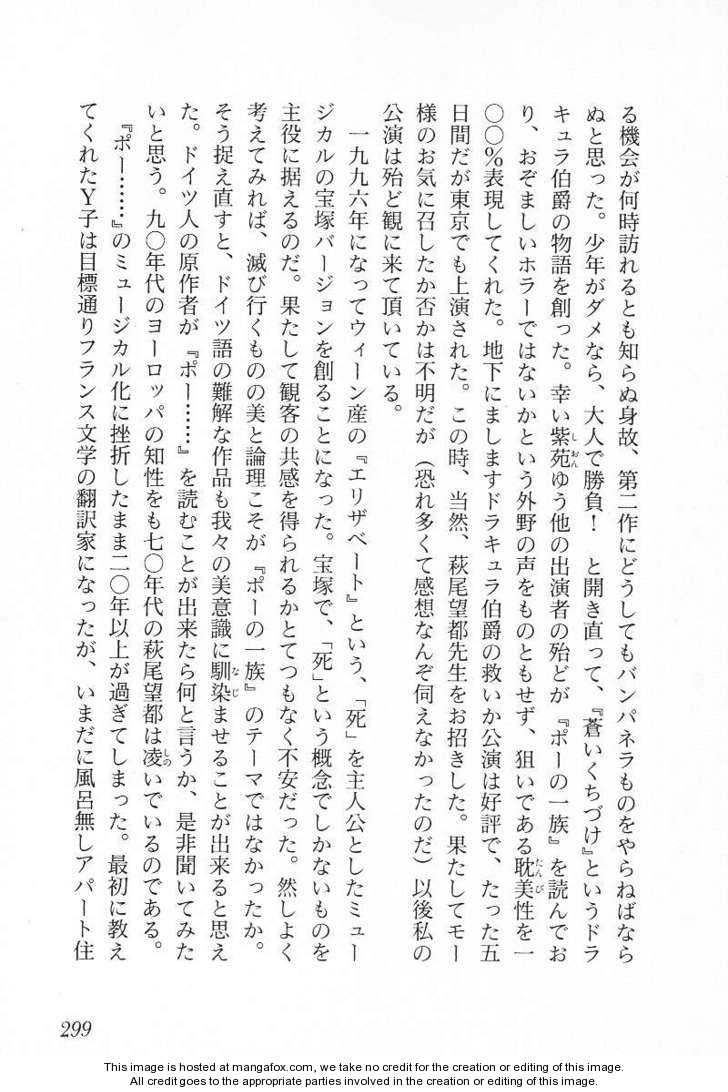 る機会が何時訪れるとも知らぬ身故、第二作にどうしてもバンパネラものをやらねばなら
ぬと思った。少年がダメなら、大人で勝負！　と開き直って、『蒼いくちづけ』というドラ
キュラ伯爵の物語を創った。幸い紫苑ゆう他の出演者の殆どが『ポーの一族』を読んでお
り、おぞましいホラーではないかという外野の声をものともせず、狙いである耽美性を一
〇〇％表現してくれた。地下にましますドラキュラ伯爵の救いか公演は好評で、たった五
日間だが東京でも上演された。この時、当然、萩尾望都先生をお招きした。果たしてモー
様のお気に召したか否かは不明だが（恐れ多くて感想なんぞ伺えなかったのだ）以後私の
公演は殆ど観に来て頂いている。
一九九六年になってウィーン産の『エリザベート』という、「死」を主人公としたミュー
ジカルの宝塚バージョンを創ることになった。宝塚で、「死」という概念でしかないものを
主役に据えるのだ。果たして観客の共感を得られるかとてつもなく不安だった。然しよく
考えてみれば、滅び行くものの美と論理こそが『ポーの一族』のテーマではなかったか。
そう捉え直すと、ドイツ語の難解な作品も我々の美意識に馴染ませることが出来ると思え
た。ドイツ人の原作者が『ポー……』を読むことが出来たら何と言うか、是非聞いてみた
いと思う。九〇年代のヨーロッパの知性をも七〇年代の萩尾望都は凌いでいるのである。
『ポー……』のミュージカル化に挫折したまま二〇年以上が過ぎてしまった。最初に教え
てくれたＹ子は目標通りフランス文学の翻訳家になったが、いまだに風呂無しアパート住
299
This image is hosted at mangafox.com, we take no credit for the creation or editing of this image.
All credit goes to the appropriate parties involved in the creation and editing of this image.